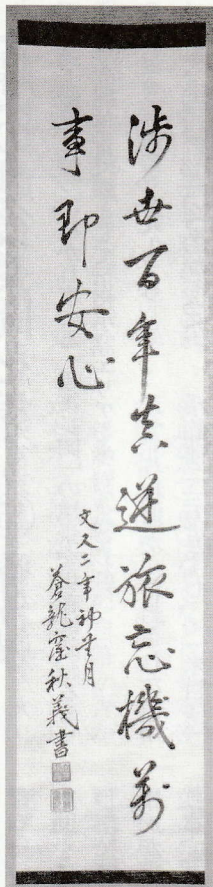 渉世百年真逆旅忘機萬
事即安心
文久二年 月
蒼龍窟秋義書